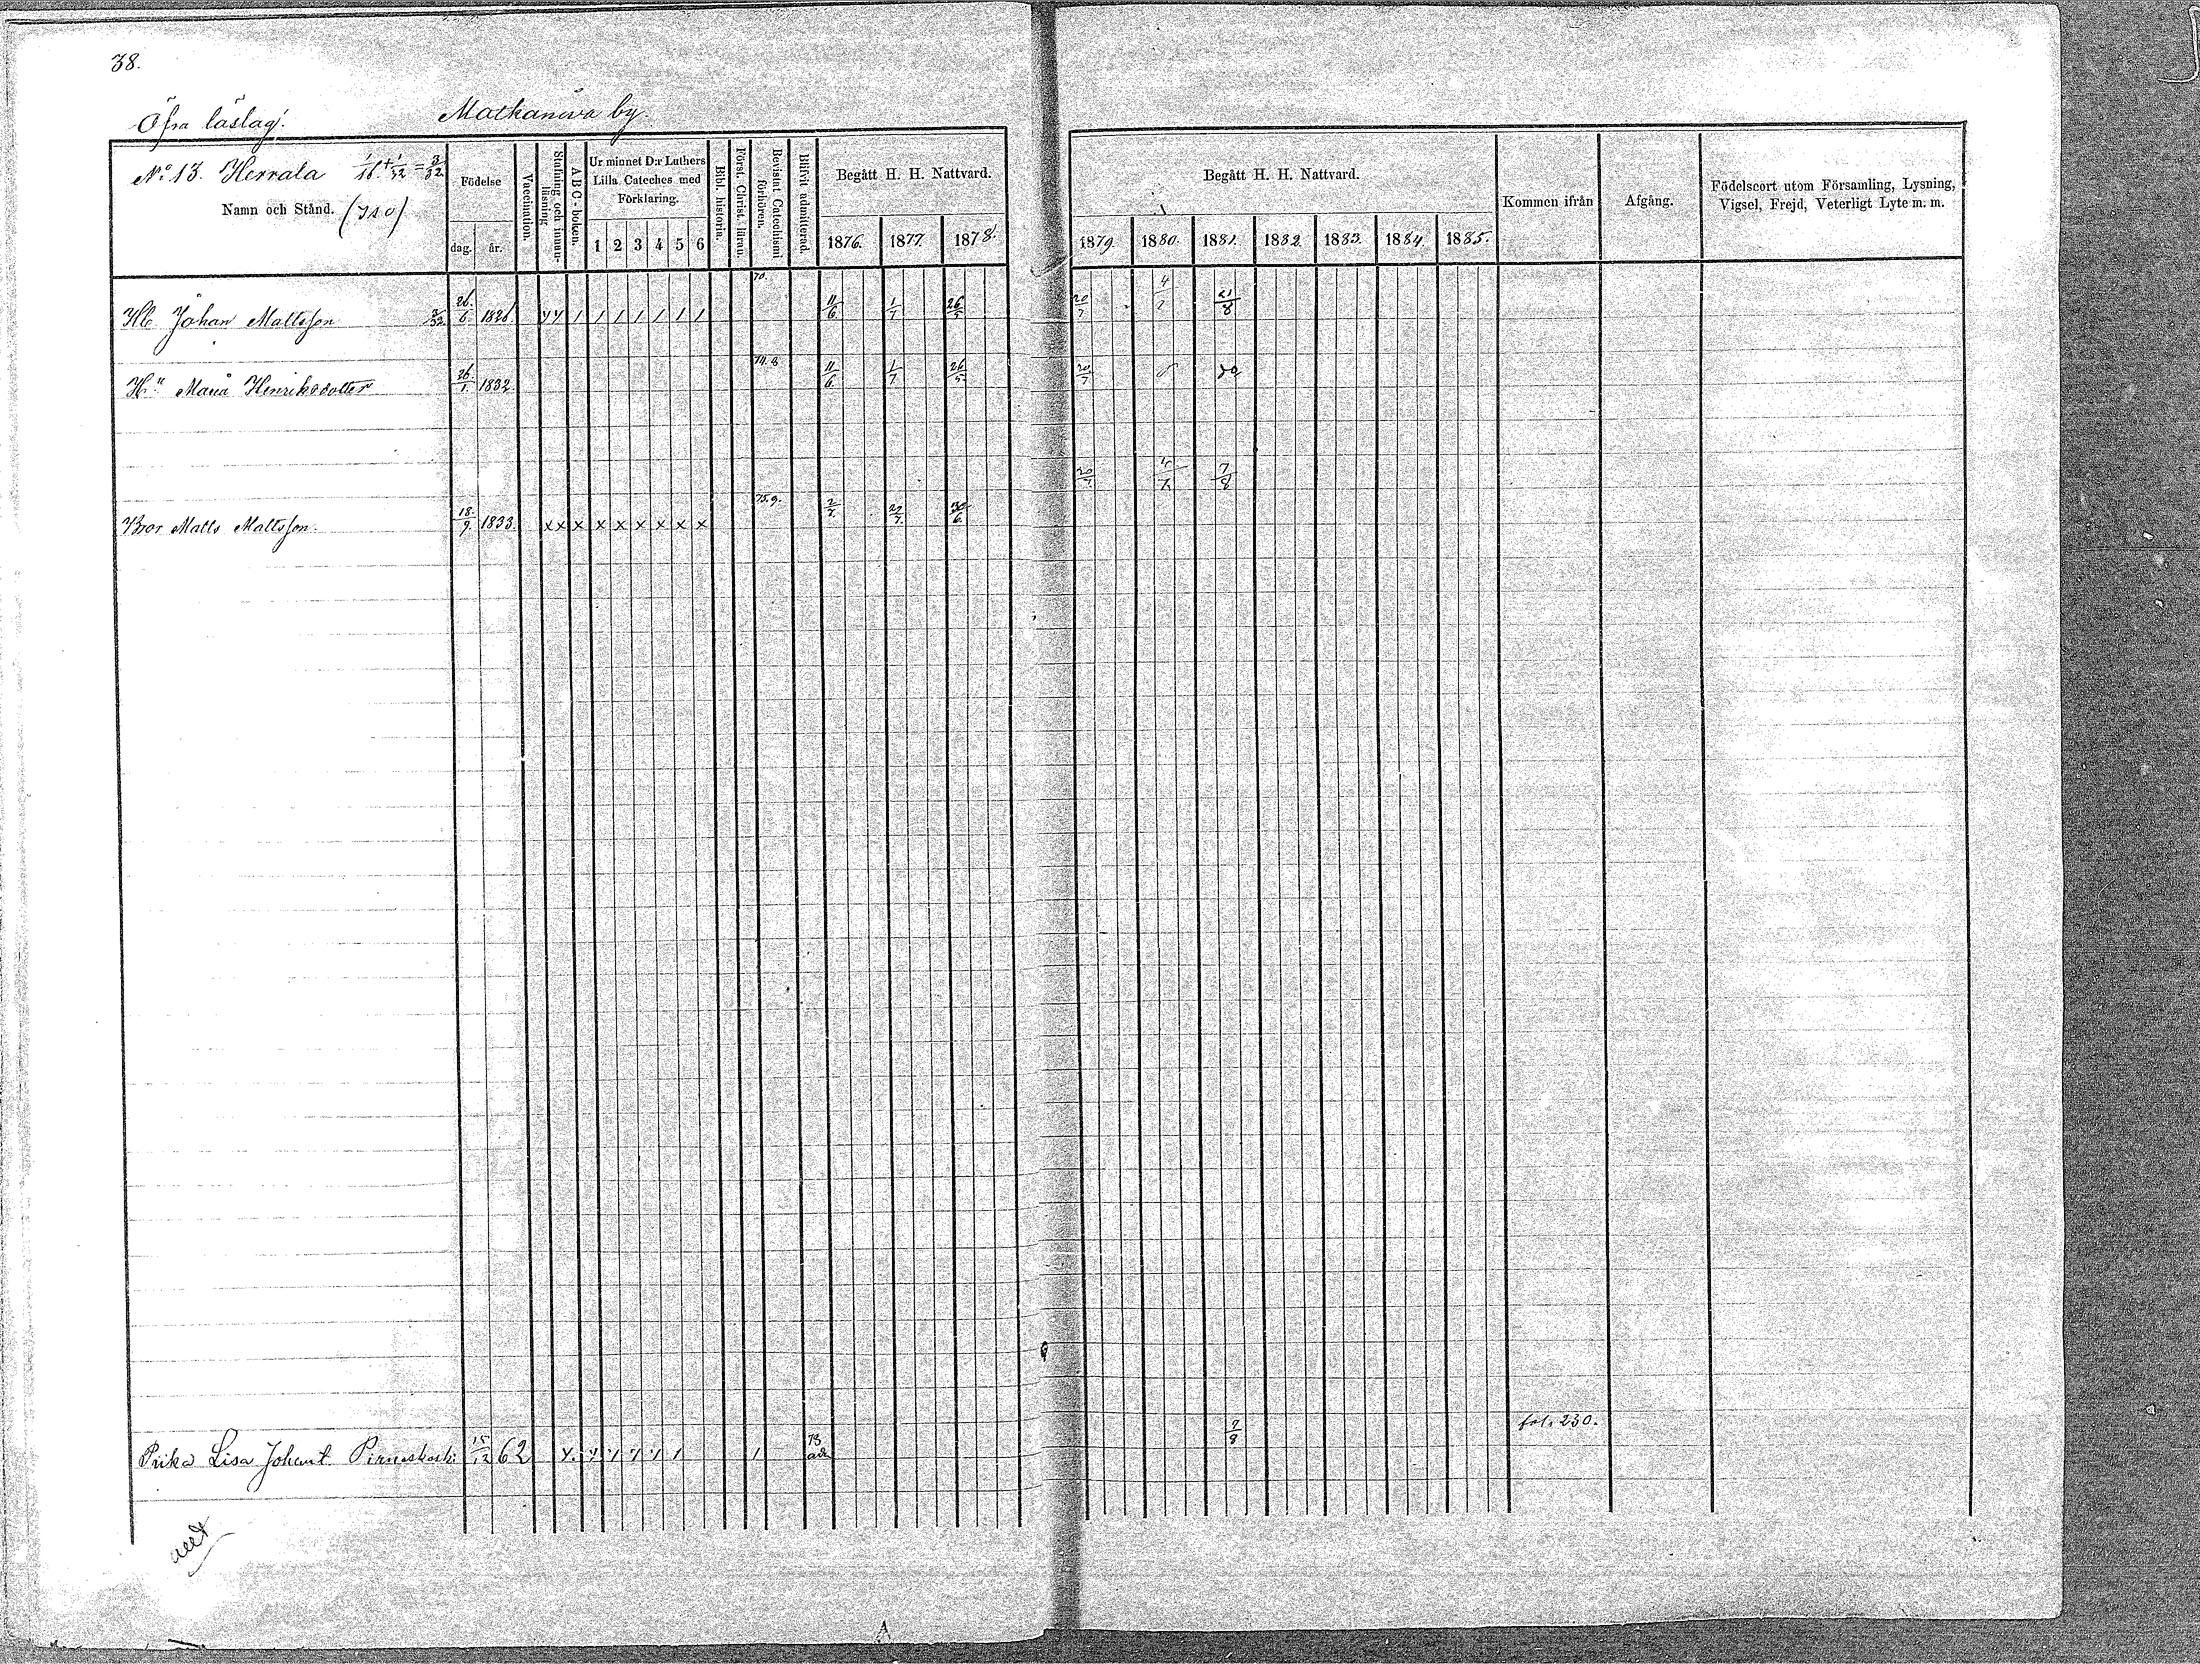 38.
Öfra läslag. Matkaniva by.
No 13. Herrala 1/16 + 1/32 = 3/32
Namn och Stånd. (710)
Födelse
dag. år.
Vaccination.
Stafning och innan-läsning
A B C - boken.
Ur minnet D:r Luthers Lilla Cateches med Förklaring.
1 2 3 4 5 6
Bibl. historia.
Först. Christ. läran.
Bevistat Catechismi förhören.
Blifvit admitterad.
Begått H. H. Nattvard.
1876. 1877. 1878.
Begått H. H. Nattvard.
1879. 1880. 1881. 1882. 1883. 1884 1885.
Kommen ifrån
Afgång.
Födelseort utom Församling, Lysning, Vigsel, Frejd, Veterligt Lyte m. m.
70.
Johan Mattsson 3/32 26/6 1826 11/6 1/7 26/5 20/7 4/7 21/8
74.8
Hu Maria Henriksdotter 26/1 1832 11/6 1/7 26/5 20/7
20/7 4/7 7/8
75.9.
Bror Matts Mattsson. 18/9 1833. x x x x x x x x x 2/7 22/7 30/6
7/8 fol. 230.
Lisa Johansd. Pirneskoski 15/12 62 adm
A